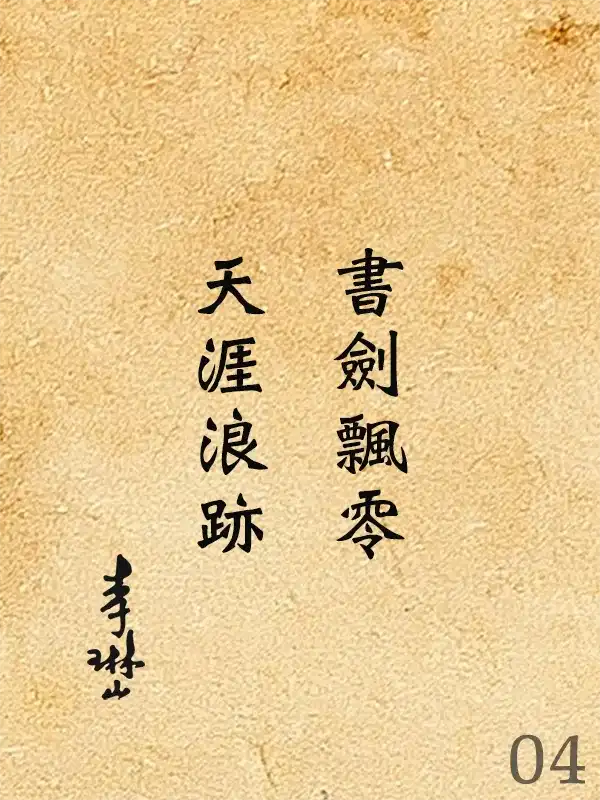 書劍飄零
天涯浪跡
李琳山
04